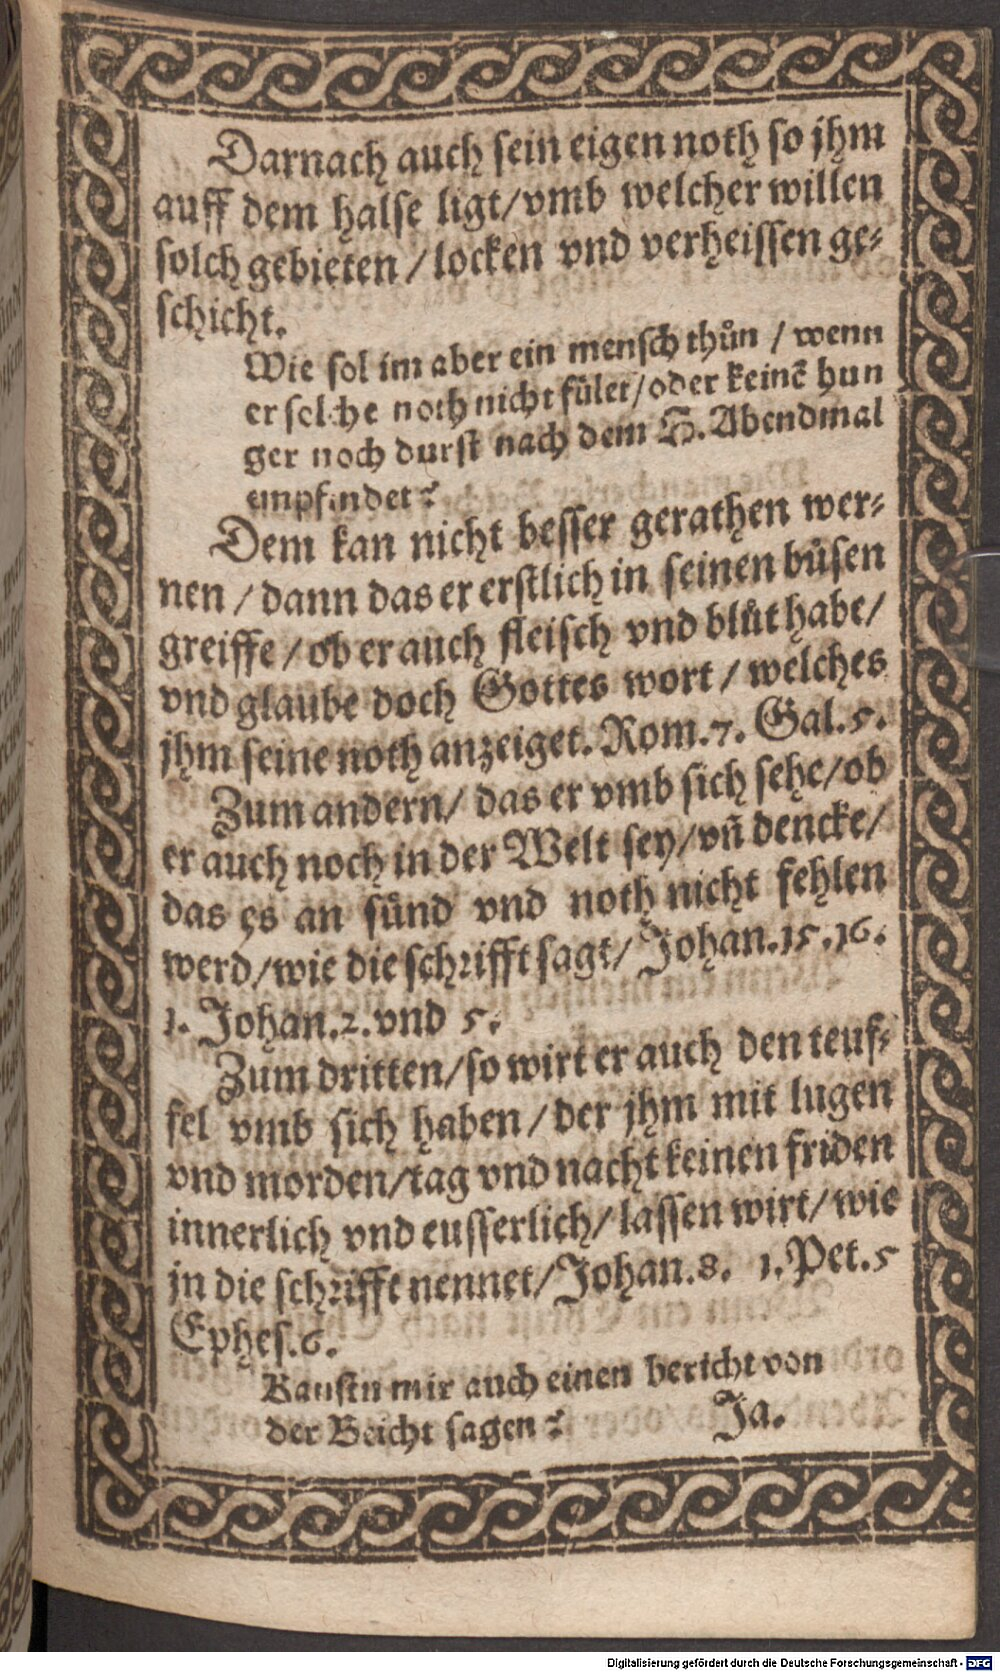 Darnach auch sein eigen noth so jhm
auff dem halse ligt/vmb welcher willen
solch gebieten / locken vnd verheissen ge⸗
schicht.
Wie sol im aber ein mensch thůn / wenn
er solche noth nicht fület/oder keinẽ hun
ger noch durst nach dem H. Abendmal
empfindet?
Dem kan nicht besser gerathen wer⸗
nen / dann das er erstlich in seinen bůsen
greiffe / ob er auch fleisch vnd blůt habe/
vnd glaube doch Gottes wort / welches
jhm seine noth anzeiget. Rom.7. Gal.5.
Zum andern/ das er vmb sich sehe/ob
er auch noch in der Welt sey/vñ dencke/
das es an sünd vnd noth nicht fehlen
werd/wie die schrifft sagt/ Johan.15.16.
1. Johan.2.vnd 5.
Zum dritten/so wirt er auch den teuf⸗
fel vmb sich haben / der jhm mit lugen
vnd morden/tag vnd nacht keinen friden
innerlich vnd eusserlich/ lassen wirt/ wie
jn die schrifft nennet/Johan.8. 1.Pet.5
Ephes.6.
Kanstu mir auch einen bericht von
der Beicht sagen? Ja.
Digitalisierung gefördert durch die Deutsche Forschungsgemeinschaft - DFG